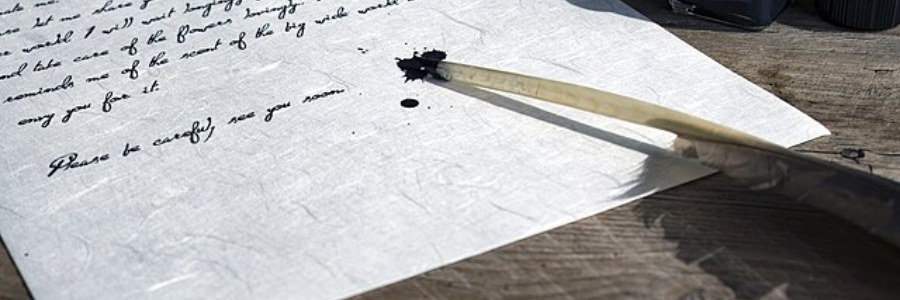 me.
let me share
world I will wait longingly
and take care of the flowers lovingly.
reminds me of the scent of the big wide world
envy you for it.
Please be careful, see you soon.